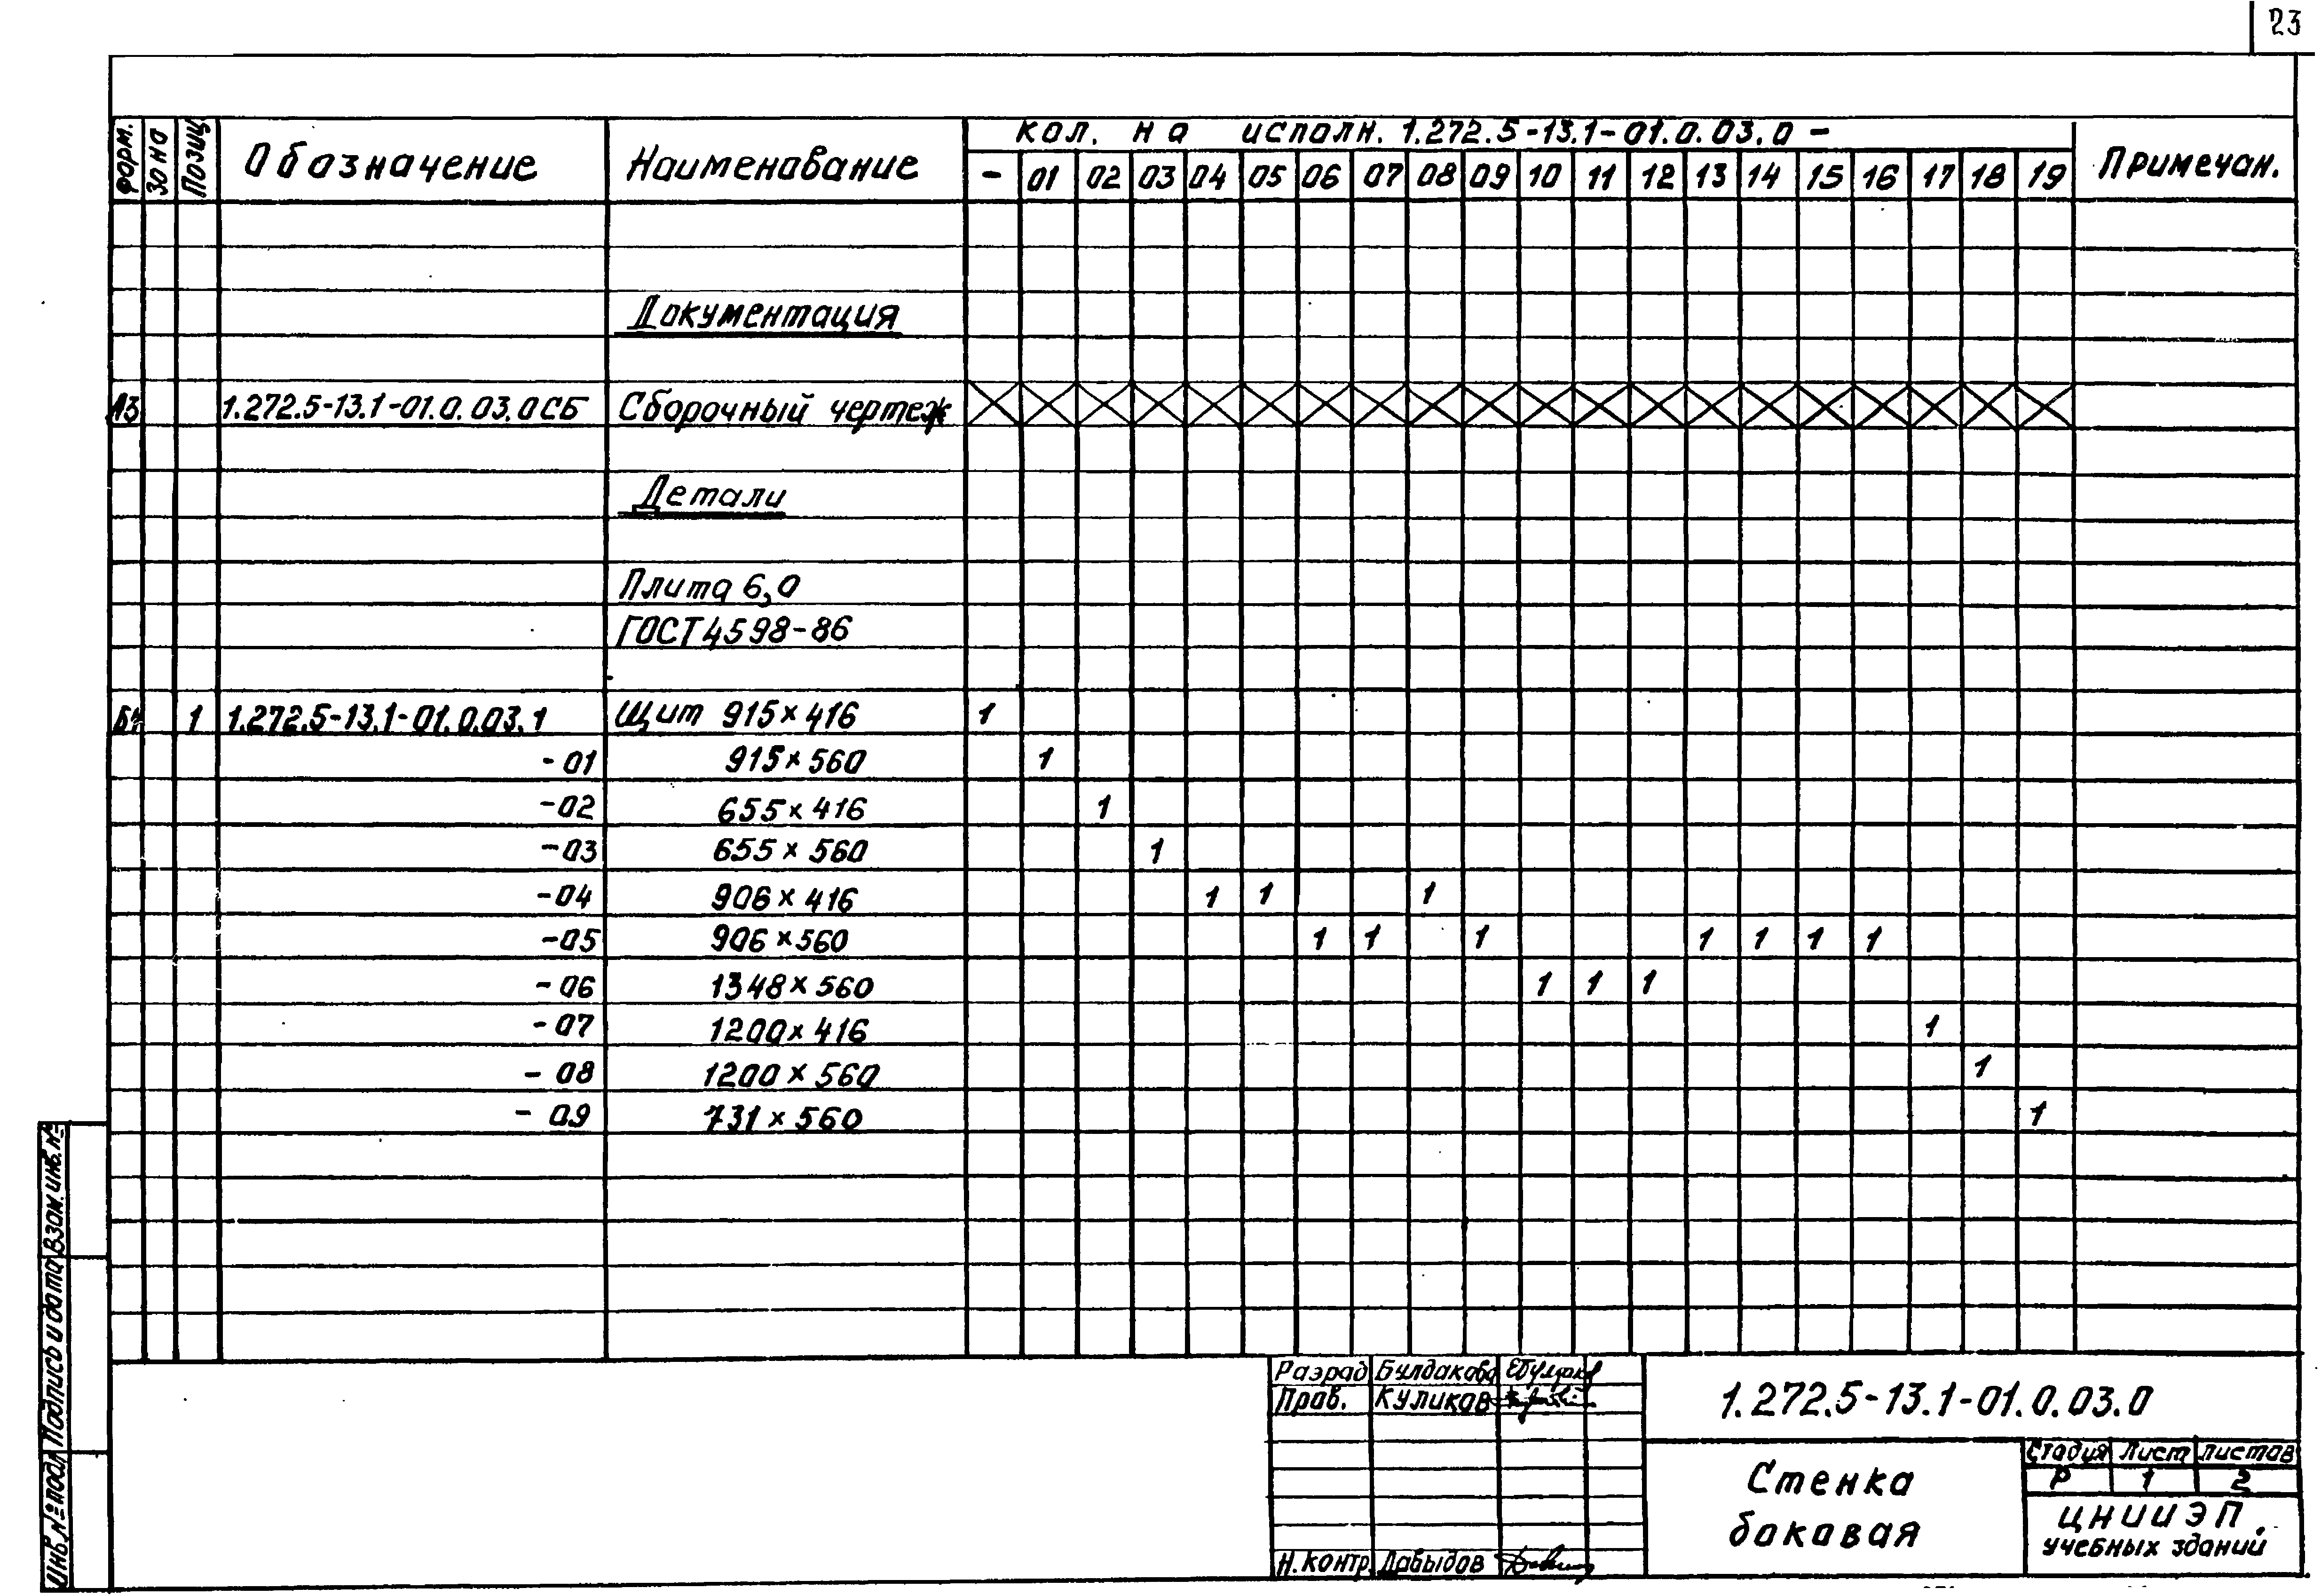 23
форм. Зона Позиц. Обозначение Наименование кол. на исполн. 1.272.5-13.1-01.0.03.0- Примечан.
- 01 02 03 04 05 06 07 08 09 10 11 12 13 14 15 16 17 18 19
Документация
А3 1.272.5-13.1-01.0.03.0СБ Сборочный чертеж
Детали
Плита 6,0
ГОСТ 4598-86
БЧ 1 1.272.5-13.1-01.0.03.1 Щит 915×416 1
-01 915×560 1
-02 655×416 1
-03 655×560 1
-04 906×416 1 1 1
-05 906×560 1 1 1 1 1 1 1
-06 1348×560 1 1 1
-07 1200×416 1
-08 1200×560 1
-09 731×560 1
Инв.№подл Подпись и дата Взам.инв.№
Разраб Булдакова
Пров. Куликов
Н.контр. Давыдов
1.272.5-13.1-01.0.03.0
Стенка
боковая
Стадия Лист Листов
Р 1 2
ЦНИИЭП
учебных зданий